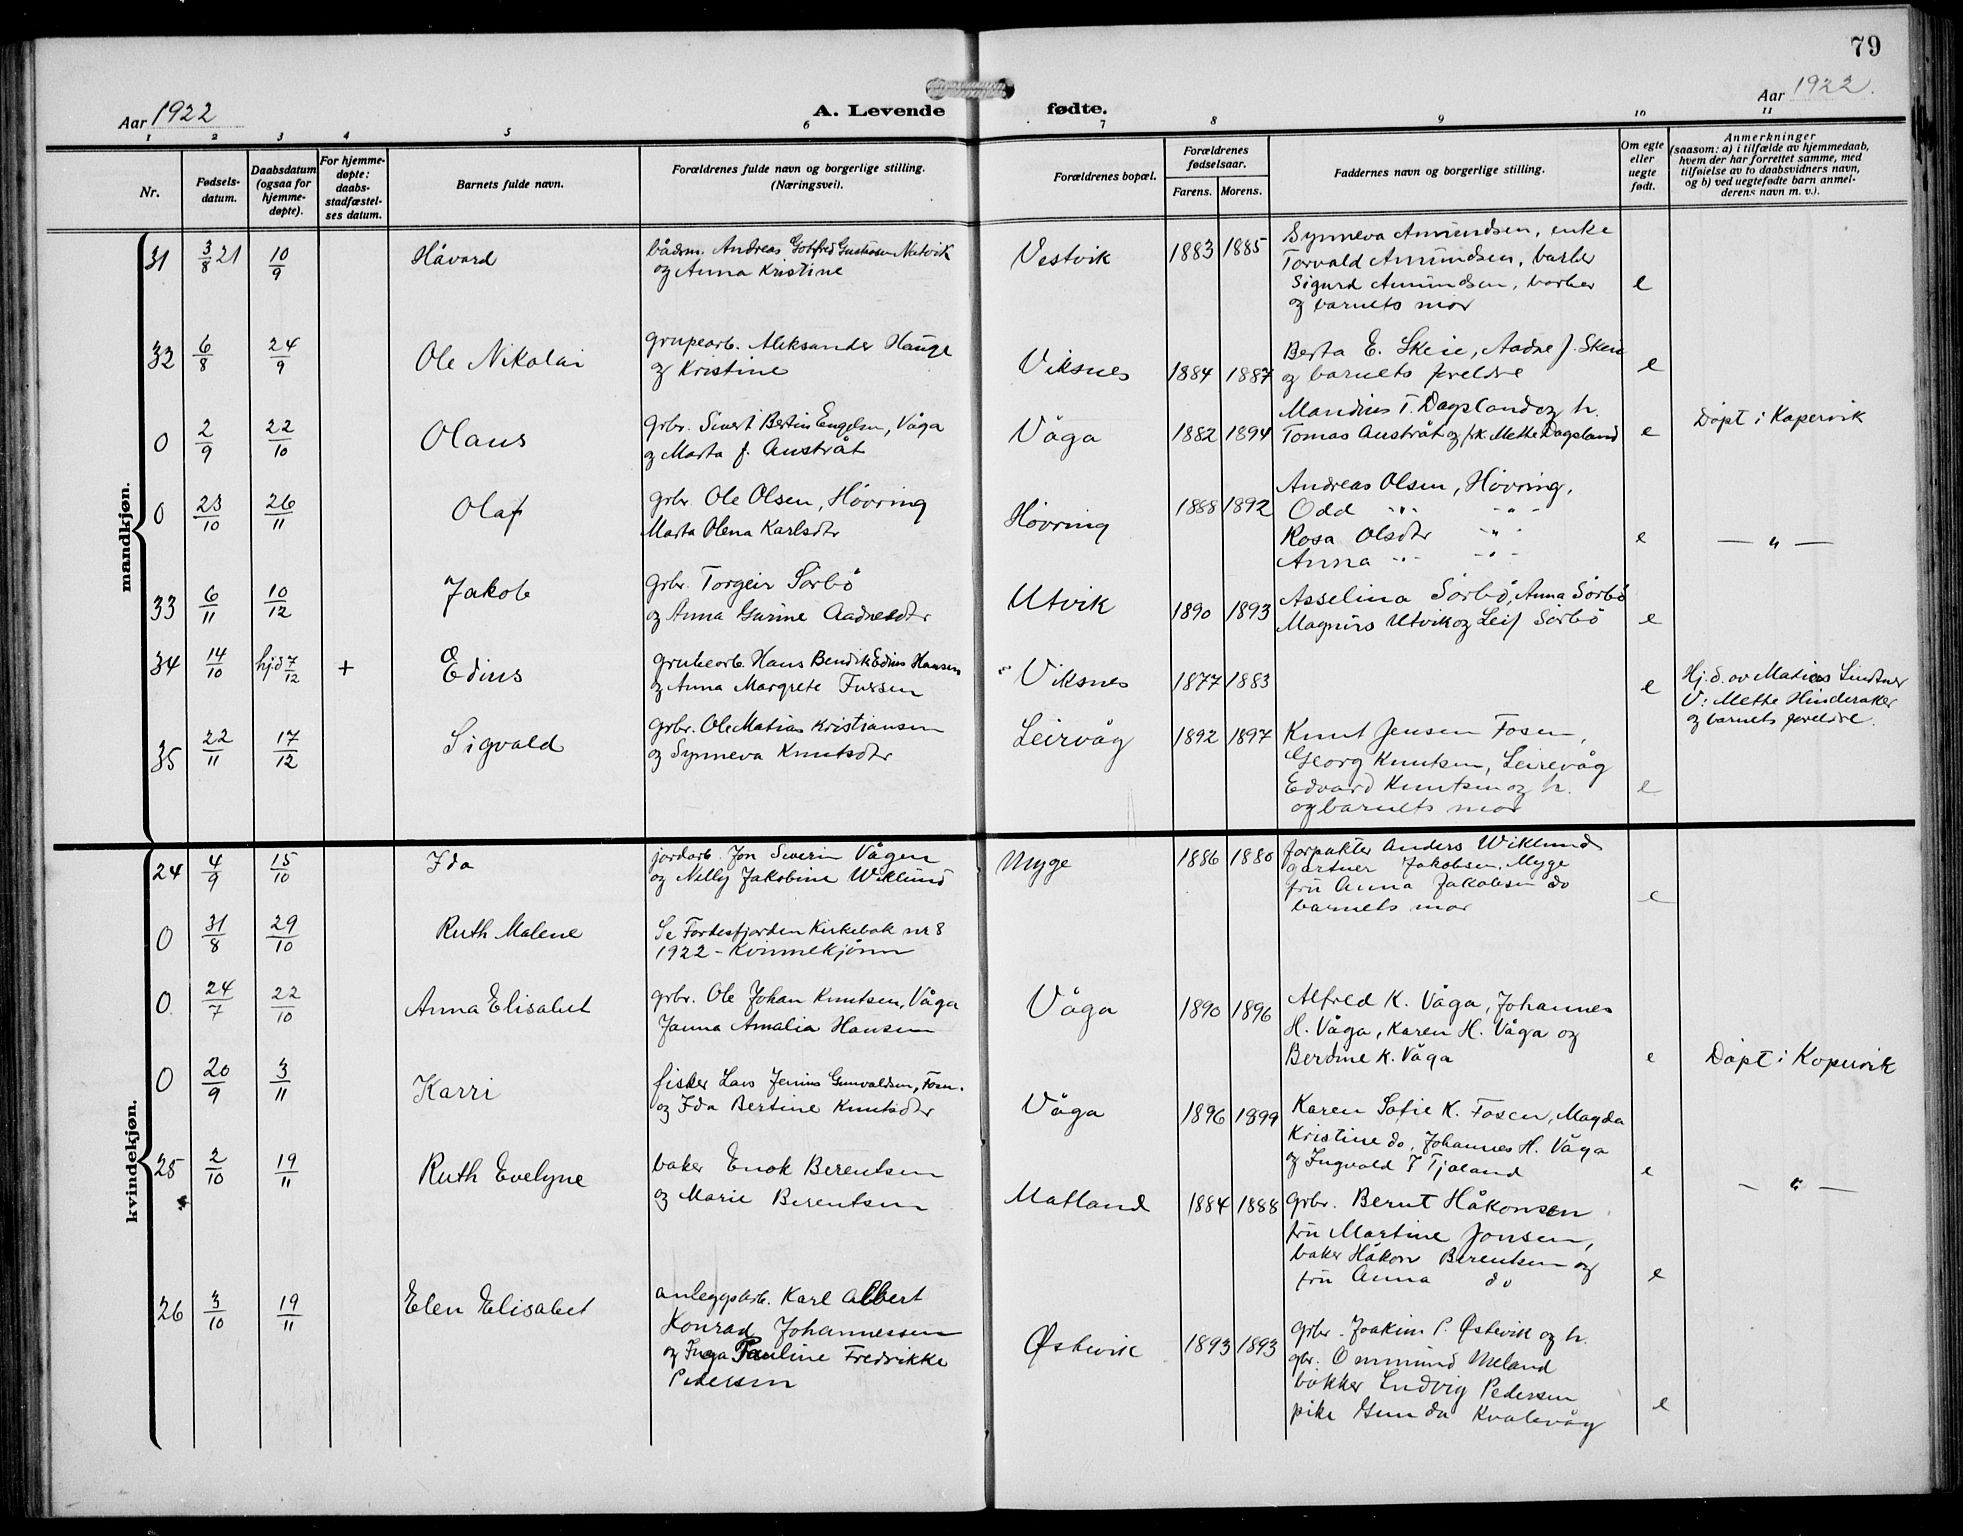 79
Aar 1922
A. Levende fødte.
Aar 1922.
1 2 3 4 5 6 7 8 9 10 11
Nr.
Fødsels-
datum.
Daabsdatum
(ogsaa for
hjemme-
døpte).
For hjemme-
døpte:
daabs-
stadfæstel-
ses datum.
Barnets fulde navn.
Forældrenes fulde navn og borgerlige stilling.
(Næringsvei).
Forældrenes bopæl.
Forældrenes
fødselsaar.
Farens. Morens.
Faddernes navn og borgerlig stilling.
Om egte
eller
uegte
født.
Anmerkninger
(saasom: a) i tilfælde av hjemmedaab,
hvem der har forrettet samme, med
tilføielse av to daabsvidners navn,
og b) ved uegtefødte barn anmel-
derens navn m. v.).
mandkjøn.
31 3/8 21 10/9 Håvard
bådsm. Andreas Gotfred Gustavsen Natvik
og Anna Kristine
Vestvik 1883 1885
Synneva Amundsen, enke
Torvald Amundsen, barber
Sigurd Amundsen, barber
og barnets mor
e
32 6/8 24/9 Ole Nikolai
grupearb. Aleksander Hauge
og Kristine
Viksnes 1884 1887
Berta E. Skeie, Aadne J. Skeie
og barnets foreldre
e
0 2/9 22/10 Olaus
Grbr. Sivert Bertin Engelsen, Våga
og Marta f. Austråt
Våga 1882 1894
Mandius T. Dagsland og h.
Tomas Austråt og frk. Methe Dagsland
e
Døpt i Kopervik
0 23/10 26/11 Olaf
grbr. Ole Olsen, Høvring
Marta Olena Karlsdtr
Høvring 1888 1892
Andreas Olsen, Høvring,
Odd " "
Rosa Olsdtr "
Anna " "
e
— " —
33 6/11 10/12 Jakob
grbr. Torgeir Sørbø
og Anna Gurine Aadnesdtr
Utvik 1890 1893
Asselina Sørbø, Anna Sørbø
Magnus Utvik og Leif Sørbø
e
34 14/10 hjd 7/12 + Edius
grubearb. Hans Bendik Edius Hansen
og Anna Margrete Iversen
Viksnes 1877 1883
e
Hj.d. av Matias Lindtner
V: Methe Hinderaker
og barnets foreldre.
35 22/11 17/12 Sigvald
grbr. Ole Matias Kristiansen
og Synneva Knutsdtr
Leirvåg 1892 1897
Knut Jensen Fosen,
Georg Knutsen, Leirevåg
Edvard Knutsen og h.
og barnets mor
e
kvindekjøn.
24 4/9 15/10 Ida
jordarb. Jon Severin Vågen
og Nelly Jakobine Wiklund
Myge 1886 1880
forpakter Anders Wiklund
gartner Jakobsen, Myge
fru Anna Jakobsen do
barnets mor
e
0 31/8 29/10 Ruth Malene
Se Førdesfjorden Kirkebok nr 8
1922 - Kvinnekjønn
0 24/7 22/10 Anna Elisabet
grbr. Ole Johan Knutsen, Våga
Janna Amalia Hansen
Våga 1890 1896
Alfred K. Våga, Johannes
H. Våga, Karen H. Våga og
Berdine K. Våga
e
Døpt i Kopervik
0 20/9 3/11 Karri
fisker Lars Jenius Gunvaldsen, Fosen.
og Ida Bertine Knutsdtr
Våga 1896 1899
Karen Sofie K. Fosen, Magda
Kristine do, Johannes H. Våga
og Ingvald J Tjøland
e
— " —
25 2/10 19/11 Ruth Evelyne
baker Enok Berentsen
og Marie Berentsen
Matland 1884 1888
Grbr. Bernt Håkonsen
fru Martine Jonsen,
baker Håkon Berentsen og
fru Anna do
e
26 3/10 19/11 Elen Elisabet
anleggsarb. Karl Albert
Konrad Johannessen
og Inga Pauline Fredrikke
Pedersen
Østevik 1893 1893
Grbr. Joakim P. Østevik og h.
gbr. Ommund Meland
bøkker Ludvig Pedersen
pike Gunda Kvalevåg
e